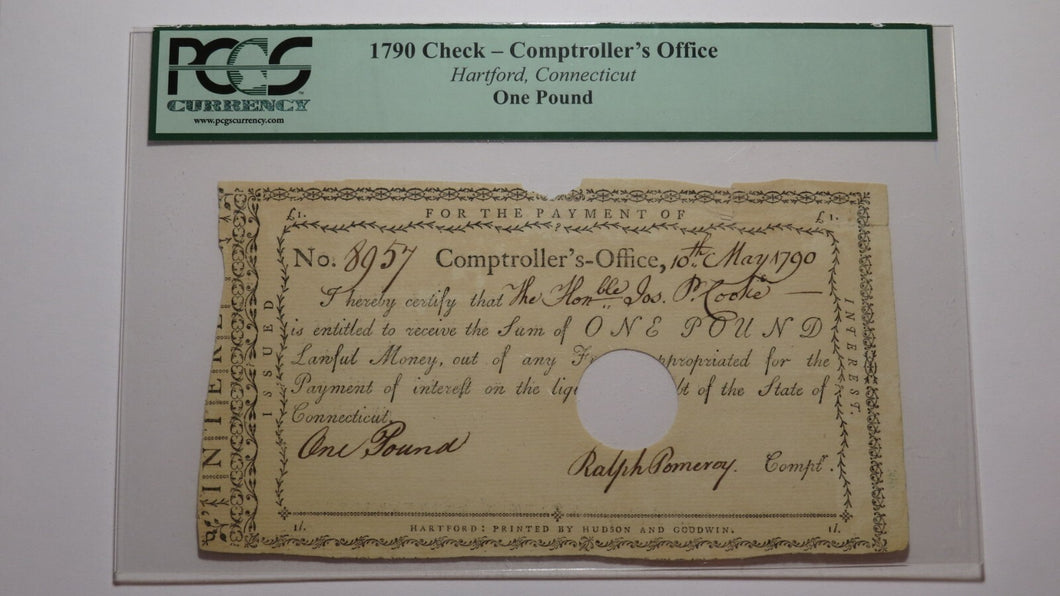 PCGS
CURRENCY
www.pcgscurrency.com
1790 Check – Comptroller's Office
Hartford, Connecticut
One Pound
£1. FOR THE PAYMENT OF £1.
No. 8957 Comptroller's-Office, 10th May 1790
I hereby certify that The Honble Jos. P. Cooke
is entitled to receive the Sum of ONE POUND
Lawful Money, out of any appropriated for the
Payment of intereſt on the of the State of
Connecticut,
One Pound
Ralph Pomeroy. Comptr.
1l. HARTFORD: PRINTED BY HUDSON AND GOODWIN. 1l.
ISSUED
INTEREST.